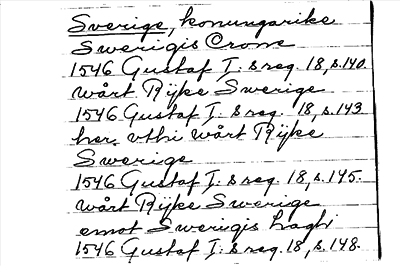 Sverige, konungarike
Swerigis Crone
1546 Gustaf I:s reg. 18, s.140.
wårt Rijke Swerige
1546 Gustaf I:s reg. 18, s.143
her vthi wårt Rijke
Swerige
1546 Gustaf I:s reg. 18, s.145.
wårt Rijke Swerige
emot Swerigis lagh
1546 Gustaf I:s reg. 18, s.148.